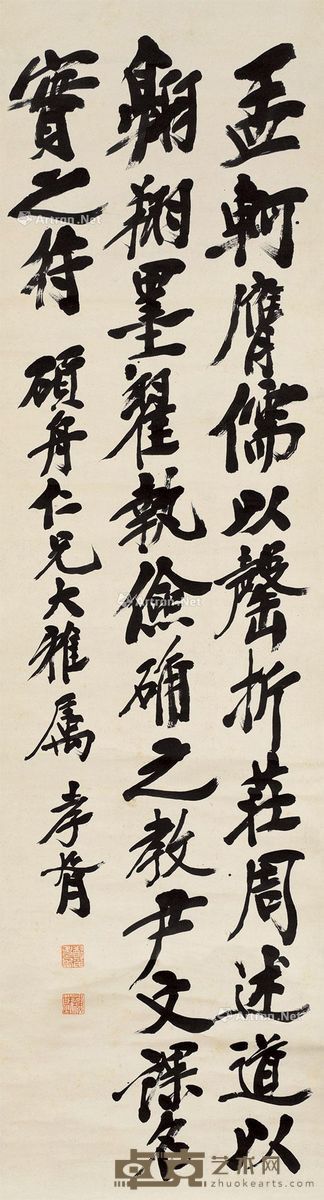 孟軻膺儒以磬折莊周述道以
翱翔墨翟執儉确之教尹文課名
實之符
碩舟仁兄大雅属 孝胥
Artron.Net
卓克艺术网
zhuokearts.com